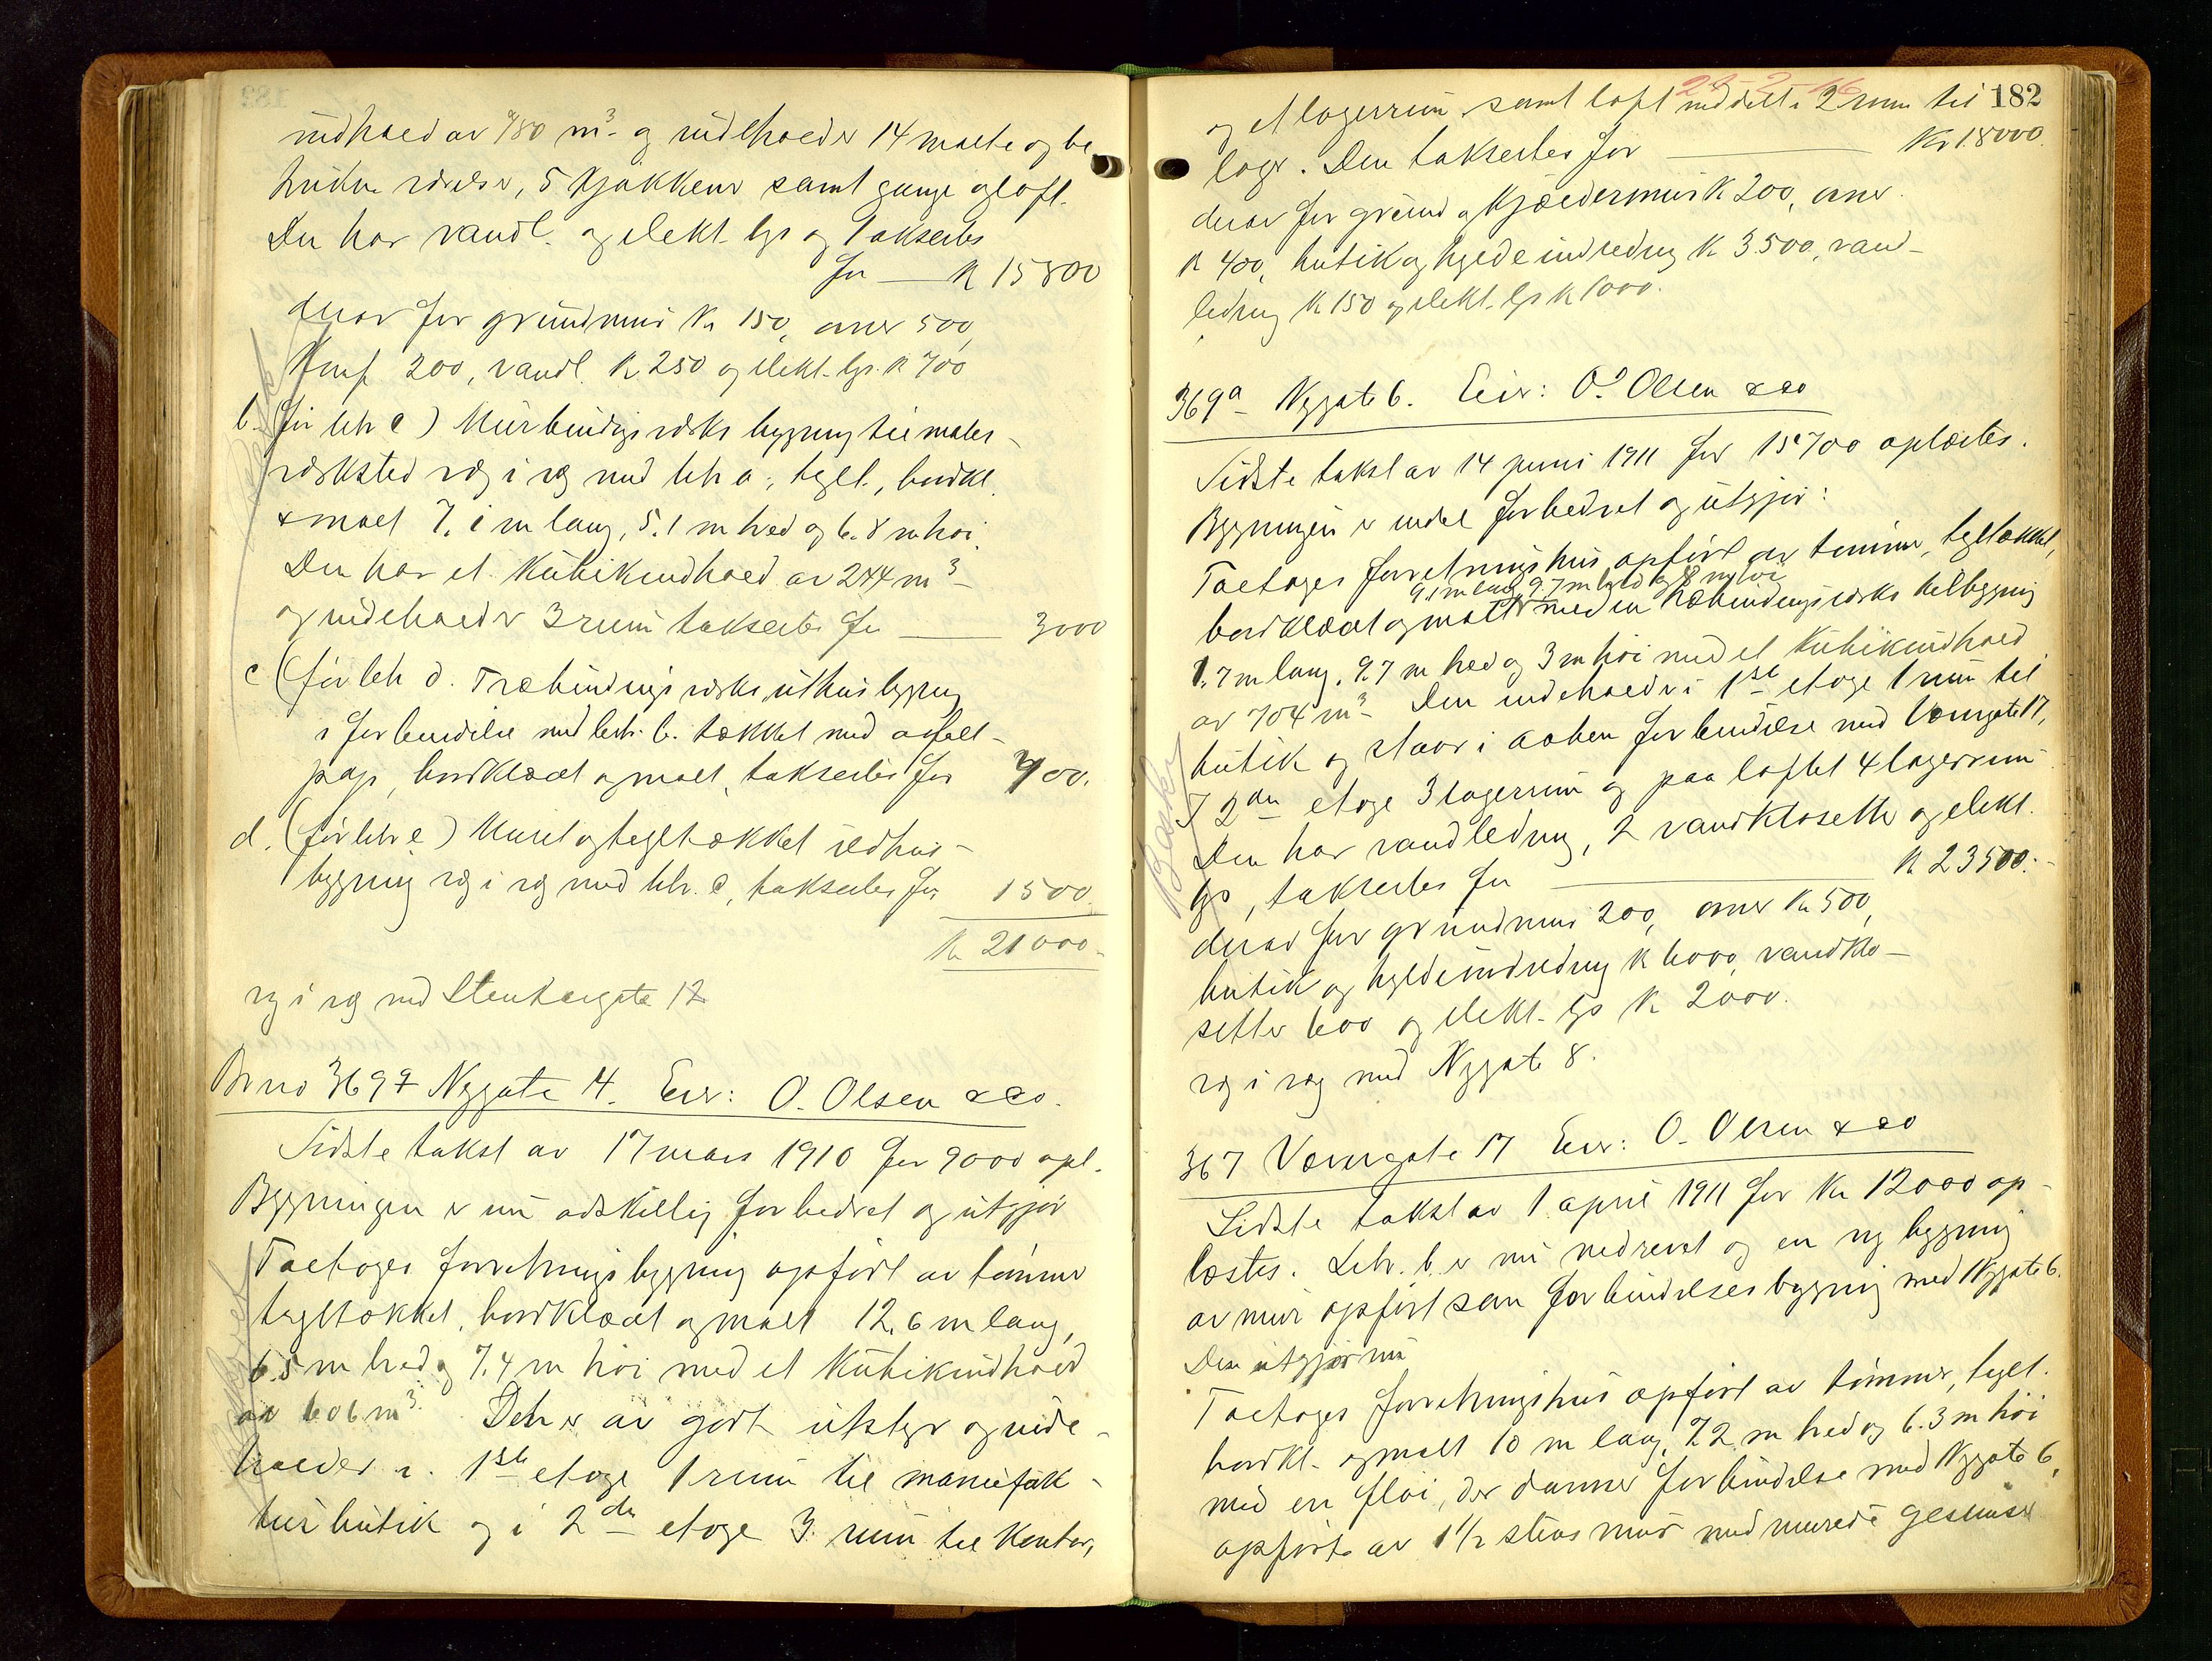 indhold av 980 m³ og indeholder 14 malte og be
trukne værelser, 5 kjøkkener samt gange og loft.
Den har vandl. og elekt. lys og takseres
for — K 15800
derav for grundmur Kr 150, ovner 500,
Komf 200, vandl. K 250 og elekt. lys. K 700
b. (før litr c) Murbindingsverks bygning til maler-
verksted væg i væg med litr a, teglt., bordkl.
& malt 7.1 m lang, 5.1 m bred og 6.8 m høi.
Den har et Kubikindhold av 244 m³
og indeholder 3 rum takseres for — 3000
c (før litr d. Træbindingsverks uthusbygning
i forbindelse med litr. b. tækket med asfalt-
pap, bordklædt og malt, takseres for 700.
d. (før litr e) Muret og tegltækket ildhus-
bygning væg i væg med litr. c, takseres for 1500
Kr 21000.-
væg i væg med Stenbergate 12
Br no 369 Nygate 4. Eier: O. Olsen & Co.
Sidste takst av 17 mars 1910 for 9000 opl.
Bygningen er nu adskillig forbedret og utgjør
Toetages forretningsbygning opført av tømmer
tegltækket, bordklædt og malt 12.6 m lang,
6.5 m bred og 7.4 m høi med et Kubikindhold
av 606 m³. Den er av godt utstyr og inde-
holder i 1ste etage 1 rum til manufak-
turbutik og i 2den etage 3 rum til Kontor,
29-2-16
182
og et lagerrum, samt loft inddelt i 2 rum til
lager. Den takseres for — Kr 18000.
derav for grund og Kjældermur K 200, ovner
K 400, butik og hyldeindredning K 3.500, vand-
ledning K 150 og elekt. lys K 1000.
369a Nygate 6. Eier: O. Olsen & Co
Sidste takst av 14 juni 1911 for 15700 oplæstes.
Bygningen er endel forbedret og utgjør:
Toetages forretningshus opført av tømmer, tegltækket,
9.1 m lang 9.7 m bred og 8 m høi
bordklædt og malt med en træbindingsverks tilbygning
1.7 m lang, 9.7 m bred og 3 m høi med et Kubikindhold
av 704 m³ Den indeholder i 1ste etage 1 rum til
butik og staar i aaben forbindelse med Værngate 17,
I 2den etage 3 lagerrum og paa loftet 4 lagerrum
Den har vandledning, 2 vandklosetter og elekt.
lys, takseres for — K 23500.-
derav for grundmur 200, ovner Kr 500,
butik og hyldeindredning K 6000, vandklo-
setter 600 og elekt. lys K 2000.
væg i væg med Nygate 8.
367 Værngate 17 Eier: O. Olsen & Co
Sidste takst av 1 april 1911 for Kr 12000 op-
læstes. Litr. b. er nu nedrevet og en ny bygning
av mur opført som forbindelsesbygning med Nygate 6.
Den utgjør nu
Toetages forretningshus opført av tømmer, teglt.
bordkl. og malt 10 m lang, 7.2 m bred og 6.3 m høi
med en fløi, der danner forbindelse med Nygate 6,
opført av 1½ stens mur med murede gesimser